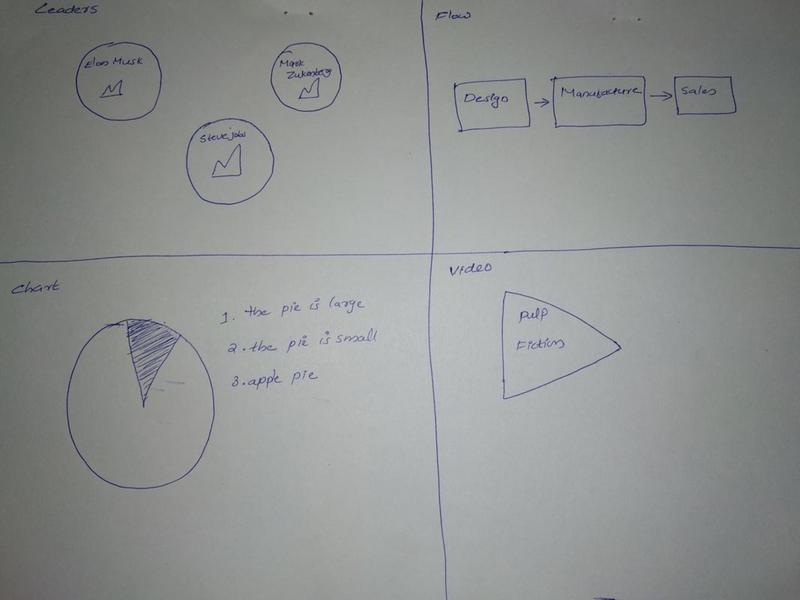 Leaders
Elon Musk
Mark
Zukenberg
Steve jobs
Flow
Design
Manufacture
Sales
Chart
1. the pie is large
2. the pie is small
3. apple pie
Video
Pulp
Fiction